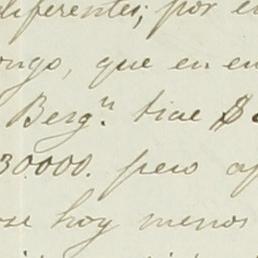 diferentes; por e
ongo, que en en
Bergn. trae $
30000. pero ap
se hoy menos